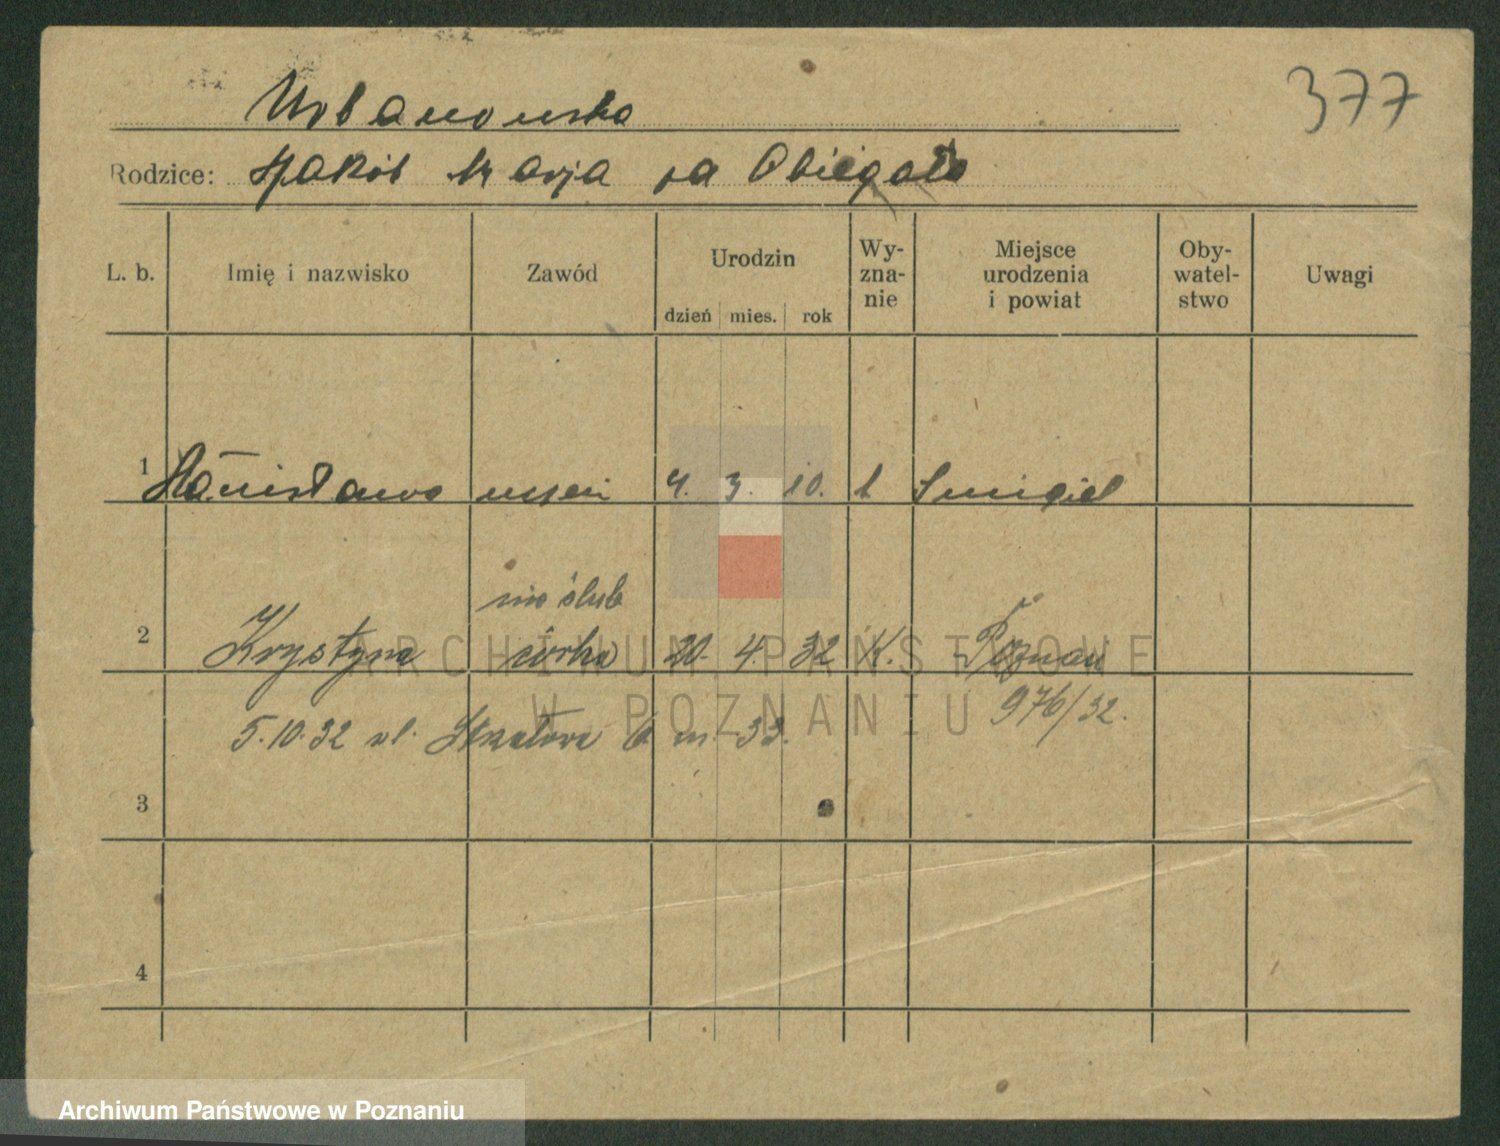 377
Urbanowska
Rodzice: Jakób Marja za Obiegała
L. b. Imię i nazwisko Zawód Urodzin dzień mies. rok Wy-zna-nie Miejsce urodzenia i powiat Oby-watel-stwo Uwagi
1 Stanisława 4. 3. 10. k Smigiel
nieślub
2 Krystyna córka 20. 4. 32 K. Poznań
976/32.
5.10.32 ul. 6 m. 33.
3
4
ARCHIWUM PAŃSTWOWE
W POZNANIU
Archiwum Państwowe w Poznaniu